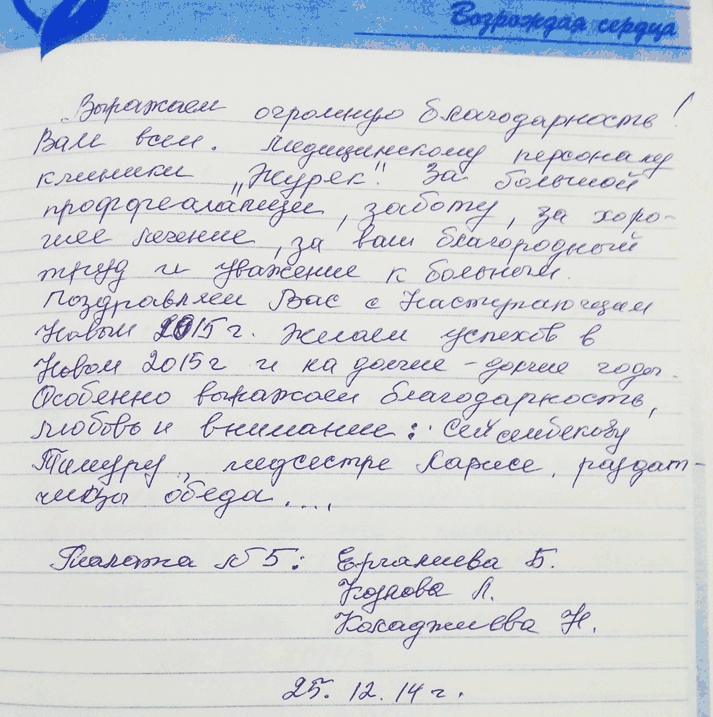 Возрождая сердца
Выражаем огромную благодарность!
Вам всем. Медицинскому персоналу
клиники "Жүрек". За большой
профреализм, заботу, за хоро-
шее лечение, за ваш благородный
труд и уважение к больным.
Поздравляем Вас с Наступающим
Новым 2015 г. Желаем успехов в
Новом 2015 г и на долгие-долгие годы.
Особенно выражаем благодарность,
любовь и внимание: Сейсембекову
Тимуру, медсестре Ларисе, раздат-
чицы обеда....
Палата № 5: Ергалиева Б.
Козлова Л.
Кокаджиева Н.
25.12.14 г.